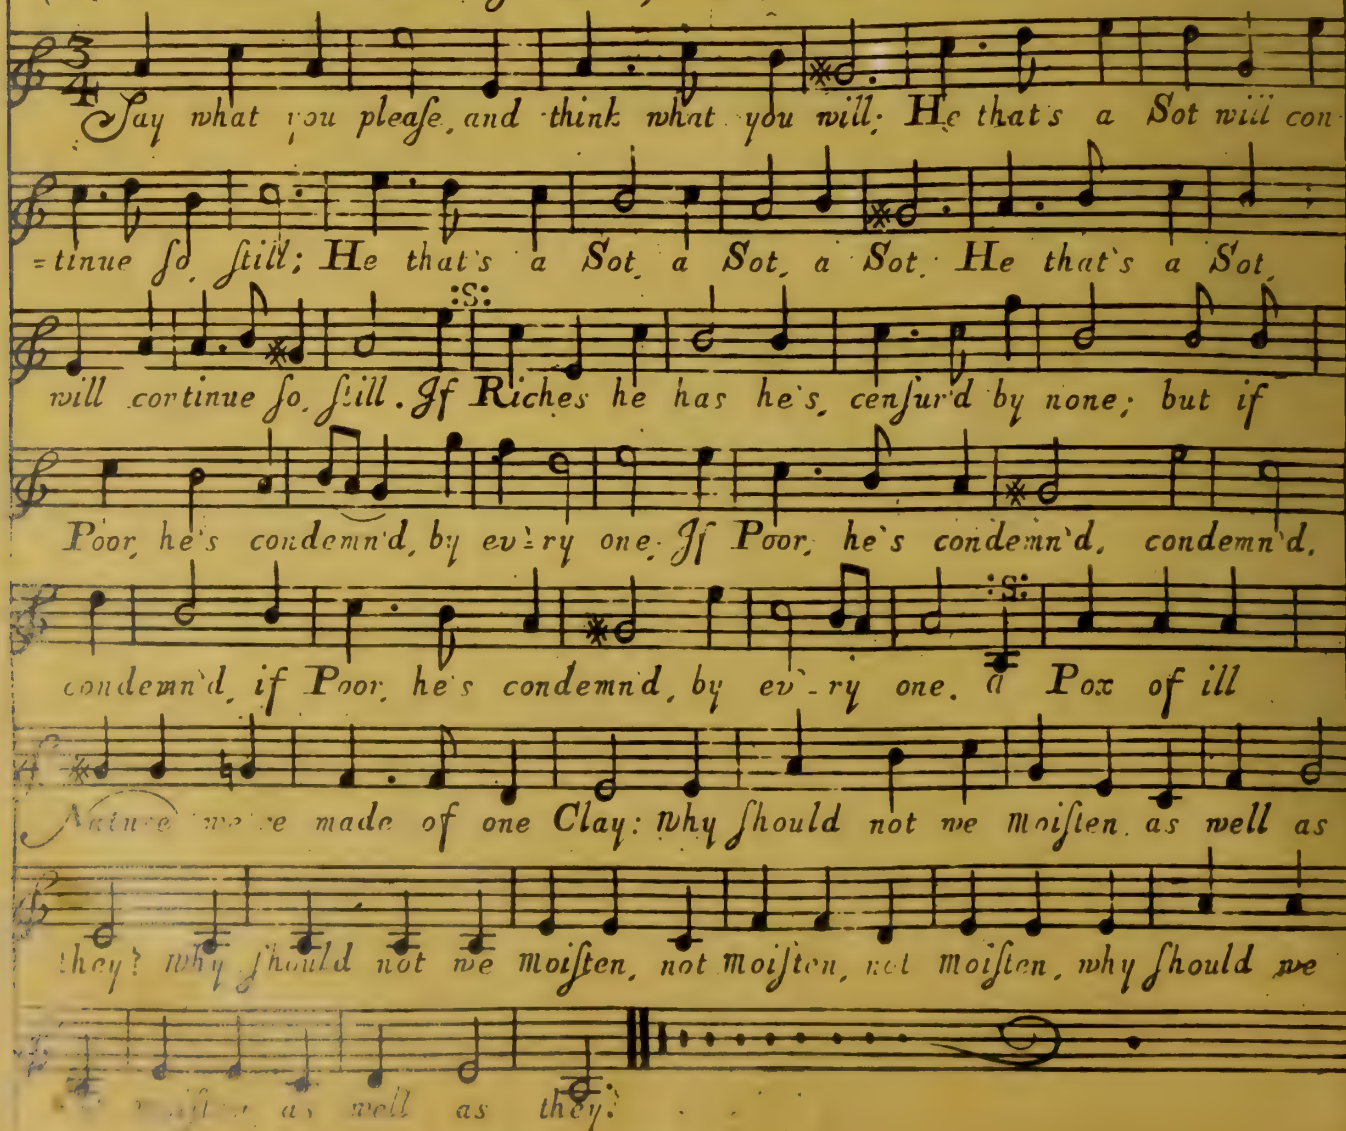 Say what you pleaſe, and think what you will; He that's a Sot will con-
=tinue ſo, ſtill; He that's a Sot, a Sot, a Sot. He that's a Sot,
:S:
will continue ſo, ſtill. If Riches he has he's, cenſur'd by none; but if
Poor, he's condemn'd, by ev'ry one. If Poor, he's condemn'd, condemn'd,
:S:
condemn'd, if Poor, he's condemn'd, by ev'-ry one. a Pox of ill
Nature we're made of one Clay: why ſhould not we moiſten, as well as
they? why ſhould not we moiſten, not moiſten, not moiſten, why ſhould we
as well as they?